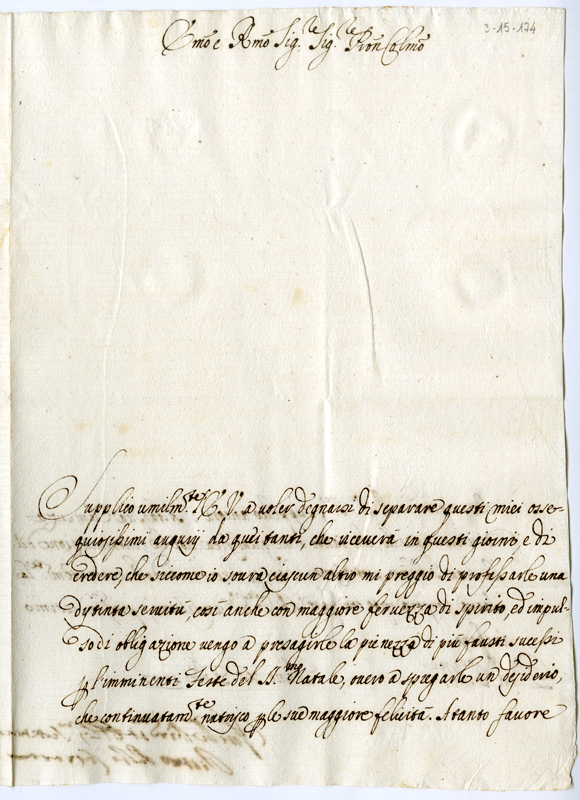 3-15-174
Emõ e Rmõ Sig.re Sig.re Pron Colmõ
Supplico umilm.te V. V. a voler degnarsi di separare questi miei osse-
quiosissimi augurij da quei tanti, che riceverà in questi giorni e di
credere, che siccome io soura ciascun altro mi preggio di professarle una
dystinta servitù, così anche con maggiore fervezza di spirito, ed impul-
so di obligazione vengo a presagirle la pienezza di più fausti sucessi
p l'imminenti Feste del SS.mo Natale, overo a spiegarle un desiderio,
che continuatam.te natrisco p le sue maggiore felicità. A tanto favore